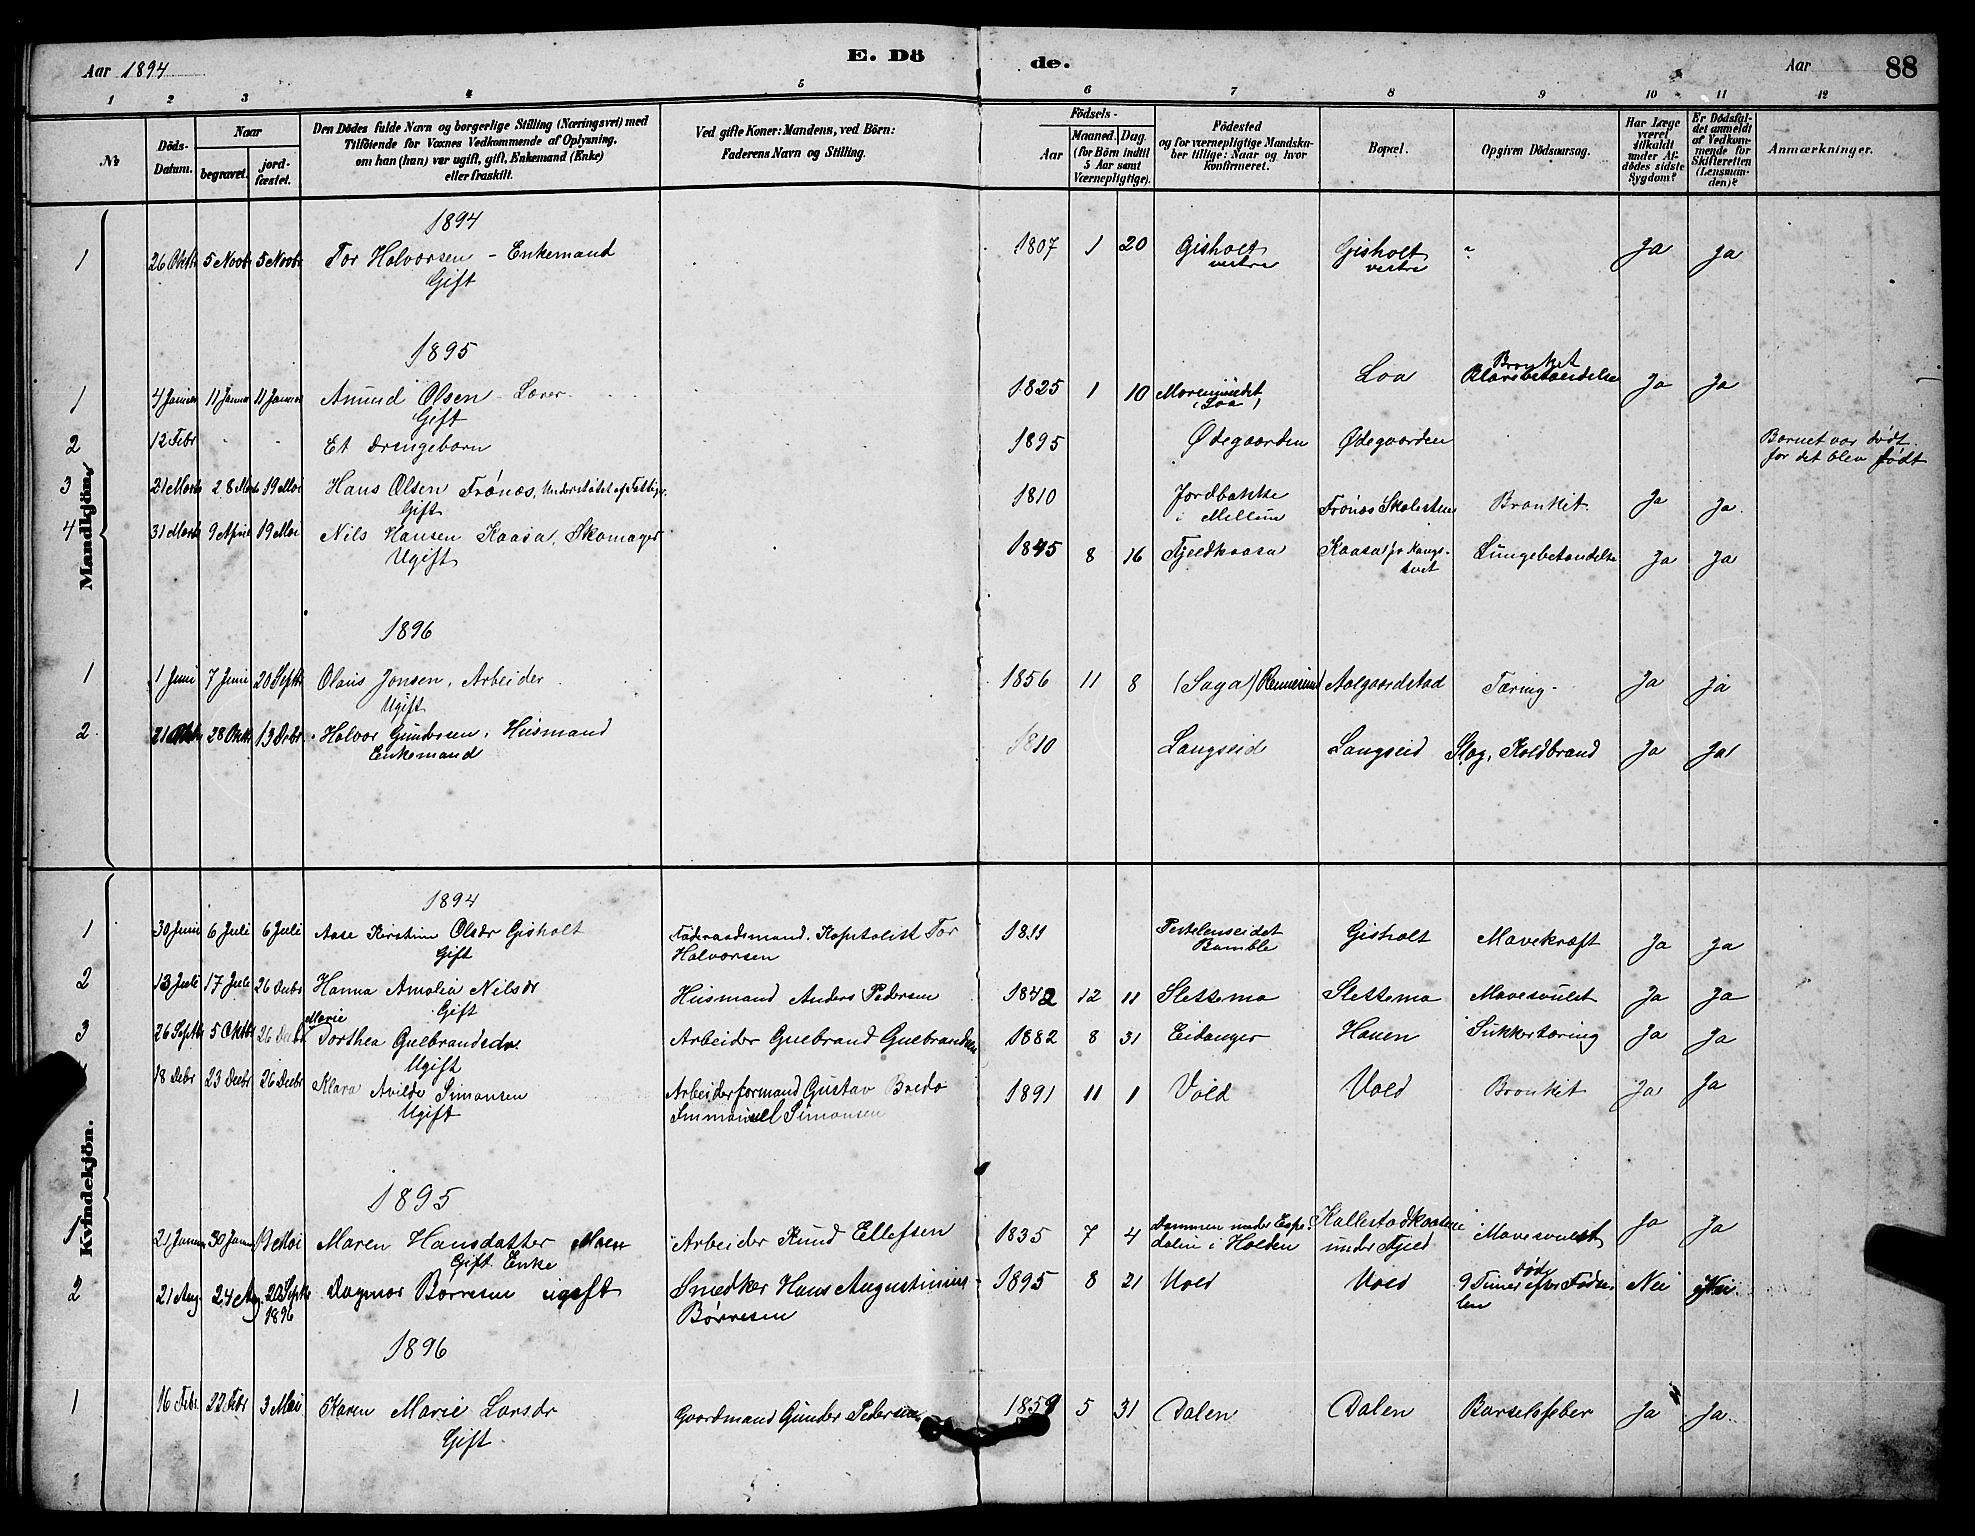 Aar 1894
E. Dö
de.
Aar
88
1 2 3 4 5 6 7 8 9 10 11 12
No
Döds-Datum.
Naar
begravet.
jord-fæstet.
Den Dödes fulde Navn og borgerlige Stilling (Næringsvei) med
Tilföiende for Voxnes Vedkommende af Oplysning,
om han (hun) var ugift, gift, Enkemand (Enke)
eller fraskilt.
Ved gifte Koner: Mandens, ved Börn:
Faderens Navn og Stilling.
Födsels-
Aar
Maaned. Dag.
(for Börn indtil
5 Aar samt
Værnepligtige).
Födested
og for værnepligtige Mandska-
ber tillige: Naar og hvor
konfirmeret.
Bopæl.
Opgiven Dödsaarsag.
Har Læge
været
tilkaldt
under Af-
dödes sidste
Sygdom?
Er Dödsfal-
det anmeldt
af Vedkom-
mende for
Skifteretten
(Lensman-
den)?
Anmærkninger.
Mandkjön.
1894
1 26 Oktbr 5 Novbr 5 Novbr Tor Halvorsen - Enkemand 1807 1 20 Gisholt Gisholt - Ja Ja
Gift vestre vestre
1895
1 4 Januar 11 Januar 11 Januar Amund Olsen - Lærer 1825 1 10 Loa Bronket Ja Ja
Gift (Loa)
2 12 Febr - - Et drengebarn 1895 Ødegaarden Ødegaarden Barnet var dødt
før det blev født
3 21 Marts 28 Marts 19 Mai Hans Olsen Frönæs, Understøttet af Fattigv. 1810 Jordbakke Frönæs Bronkit Ja Ja
Gift i Mellum
4 31 Marts 9 April 19 Mai Nils Hansen Kaasa, Skomager 1845 8 16 Fjeldkaasa Kaasa Lungebetændelse Ja Ja
Ugift
1896
1 1 Juni 7 Juni 20 Septbr Olaus Jonsen, Arbeider 1856 11 8 (Saga) Aalgaardstad Tæring Ja Ja
Ugift
2 21 Oktbr 28 Oktbr 13 Decbr Halvor Gundersen, Husmand 1810 Langseid Langseid Slag, Koldbrand Ja Ja
Enkemand
Kvindekjön.
1894
1 30 Juni 6 Juli 6 Juli Aase Kirstine Olsdr Gisholt Føderaadsmand, Kapitalist Tor 1811 Gisholt Mavekræft Ja Ja
Gift Halvorsen Bamble
2 13 Juli 17 Juli 26 Decbr Hanna Amalia Nilsdr Husmand Anders Pedersen 1842 12 11 Slettema Slettema Mavesvulst Ja Ja
Gift
3 26 Septbr 5 Oktbr 26 Decbr Marie Dorthea Gulbrandsdr. Arbeider Gulbrand Gulbrandsen 1882 8 31 Eidanger Hauen Sukkertæring Ja Ja
Ugift
18 Debr 23 Decbr 26 Decbr Klara Avilde Simonsen Arbeiderformand Gustav Bredo 1891 11 1 Vold Vold Bronkit Ja Ja
Ugift Immanuel Simonsen
1895
1 21 Januar 30 Januar 19 Mai Maren Hansdatter Moen Arbeider Knud Ellefsen 1835 7 4 Dammen under Espe- Kallestadkaasene Mavesvulst Ja Ja
Gift Enke dalen i Holden under Fjeld
2 21 Aug 24 Aug 20 Septbr 1896 Dagmar Börresen ugift Smedker Hans Augustinius 1895 8 21 Vold Vold død 9 Timer efter Fødse- Nei Nei
Börresen len
1896
1 16 Febr 22 Febr 3 Mai Karen Marie Larsdr Gaardmand Gunder Pedersen 1859 5 31 Dalen Dalen Barselsfeber Ja Ja
Gift